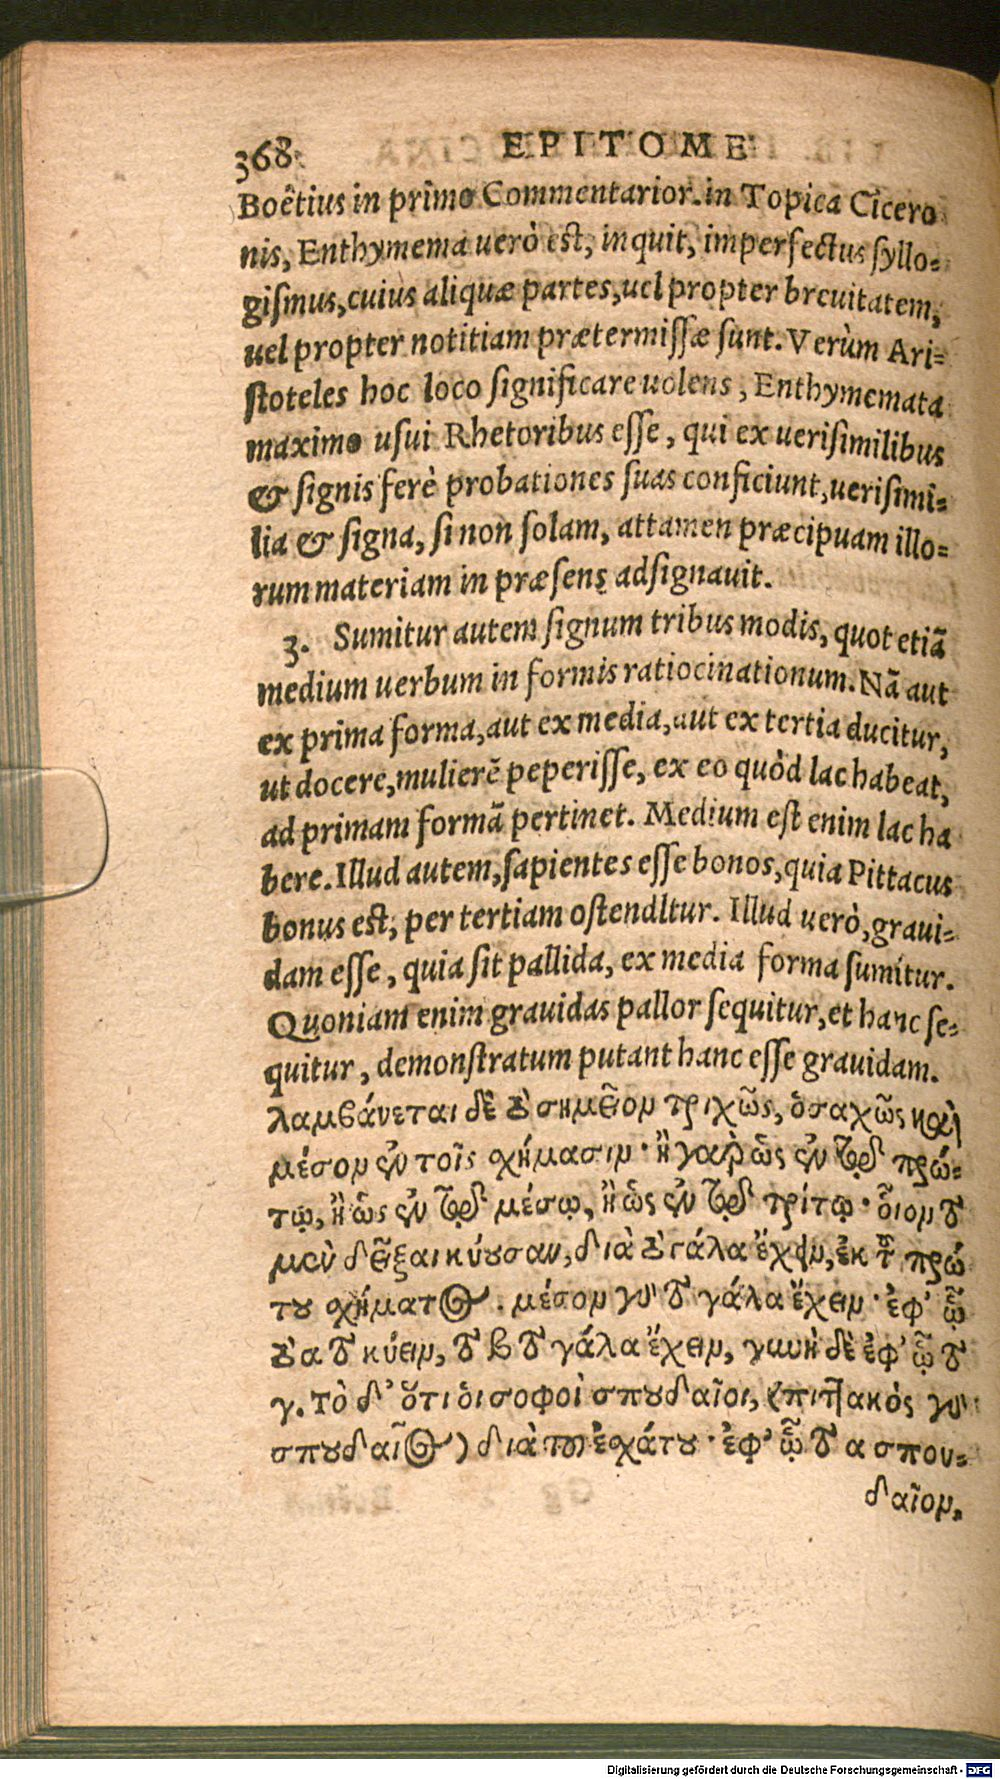 368 EPITOME
Boêtius in primo Commentarior. in Topica Cicero
nis, Enthymema uerò est, inquit, imperfectus syllo-
gismus, cuius aliquæ partes, uel propter breuitatem,
uel propter notitiam prætermissæ sunt. Verùm Ari-
stoteles hoc loco significare uolens, Enthymemata
maximo usui Rhetoribus esse, qui ex uerisimilibus
& signis ferè probationes suas conficiunt, uerisimi-
lia & signa, si non solam, attamen præcipuam illo-
rum materiam in præsens adsignauit.
3. Sumitur autem signum tribus modis, quot etiã
medium uerbum in formis ratiocinationum. Nã aut
ex prima forma, aut ex media, aut ex tertia ducitur,
ut docere, mulierẽ peperisse, ex eo quòd lac habeat,
ad primam formã pertinet. Medium est enim lac ha
bere. Illud autem, sapientes esse bonos, quia Pittacus
bonus est, per tertiam ostenditur. Illud uerò, graui-
dam esse, quia sit pallida, ex media forma sumitur.
Quoniam enim grauidas pallor sequitur, et hanc se-
quitur, demonstratum putant hanc esse grauidam.
λαμβάνεται δὲ τὸ σημεῖον τριχῶς, ὁσαχῶς καὶ
μέσον ἐν τοῖς σχήμασιν· ἢ γαρ ὡς ἐν τῷ πρώ-
τῳ, ἢ ὡς ἐν τῷ μέσῳ, ἢ ὡς ἐν τῷ τρίτῳ· οἷον τὸ
μὲν δεῖξαι κύουσαν, διὰ τὸ γάλα ἔχειν, ἐκ τοῦ πρώ
του σχήματος. μέσον γὰρ τὸ γάλα ἔχειν· ἐφ' ᾧ
τὸ α τὸ κύειν, τὸ β τὸ γάλα ἔχειν, γυνὴ δὲ ἐφ' ᾧ τὸ
γ. Τὸ δ' ὅτι οἱ σοφοὶ σπουδαῖοι, (πιττακός γὰρ
σπουδαῖος) διὰ τοῦ ἐσχάτου· ἐφ' ᾧ τὸ α σπου-
δαῖον,
Digitalisierung gefördert durch die Deutsche Forschungsgemeinschaft - DFG